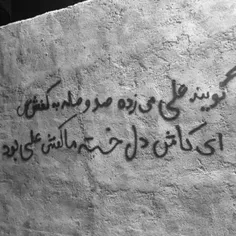 گویند علی می زده صد وصله به کفش
ای کاش دل خسته ما کفش علی بود